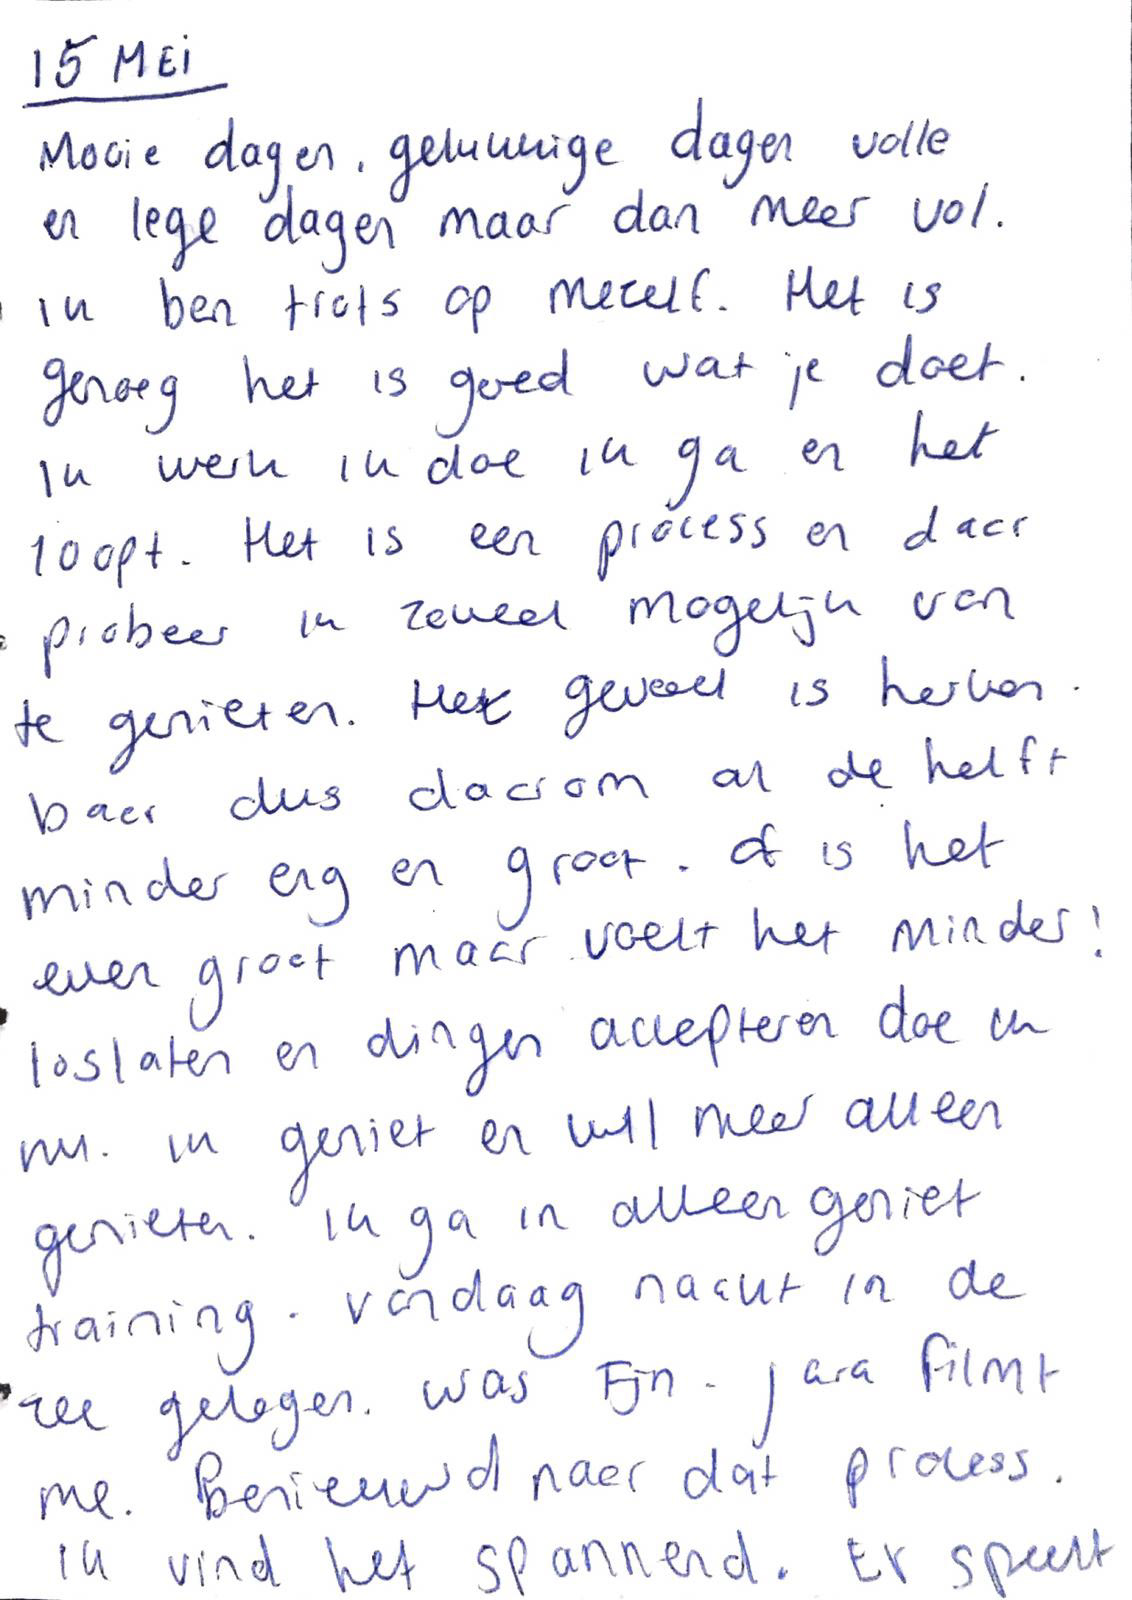 15 MEi
Mooie dagen, gelukkige dagen volle
en lege dagen maar dan meer vol.
ik ben trots op mezelf. Het is
genoeg het is goed wat je doet.
Ik werk ik doe ik ga en het
loopt. Het is een process en daar
probeer ik zoveel mogelijk van
te genieten. Het gevoel is herken-
baar dus daarom al de helft
minder erg en groot. of is het
even groot maar voelt het minder!
loslaten en dingen accepteren doe ik
nu. ik geniet en wil meer alleen
genieten. ik ga in alleen geniet
training. vandaag naakt in de
zee gelegen. was Fijn. Jara filmt
me. Benieuwd naar dat process.
ik vind het spannend. Er speelt